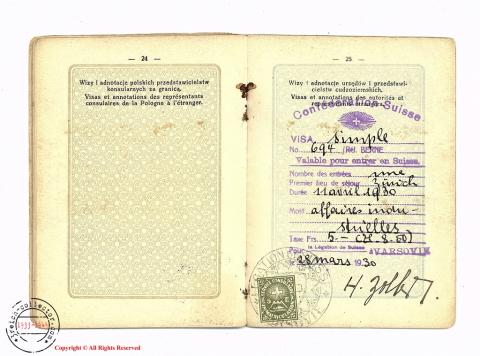 — 24 —
Wizy i adnotacje polskich przedstawicielstw
konsularnych za granicą.
Visas et annotations des représentants
consulaires de la Pologne à l'étranger.
— 25 —
Wizy i adnotacje urzędów i przedstawi-
cielstw cudzoziemskich.
Visas et annotations des autorités et
Confédération Suisse
VISA simple
No. 694 /Réf. BERNE
Valable pour entrer en Suisse.
Nombre des entrées une
Premier lieu de séjour Zürich
Durée 11 avril 1930
Motif affaires indu-
strielles
Taxe Frs. 5.- (Zl. 8.60)
Pour la Légation de Suisse à VARSOVIE
28 mars 1930
treich-collector.com
1933-1945
Copyright © All Rights Reserved